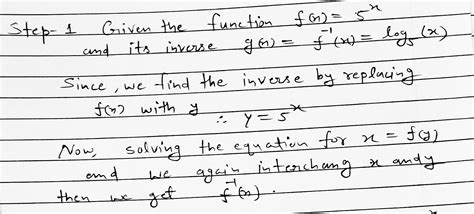 Step-1 Given the function f(x) = 5^x
and its inverse g(x) = f^-1(x) = log_5 (x)
Since, we find the inverse by replacing
f(x) with y ∴ y = 5^x
Now, solving the equation for x = f(y)
and we again interchang x and y
then we get f^-1(x).